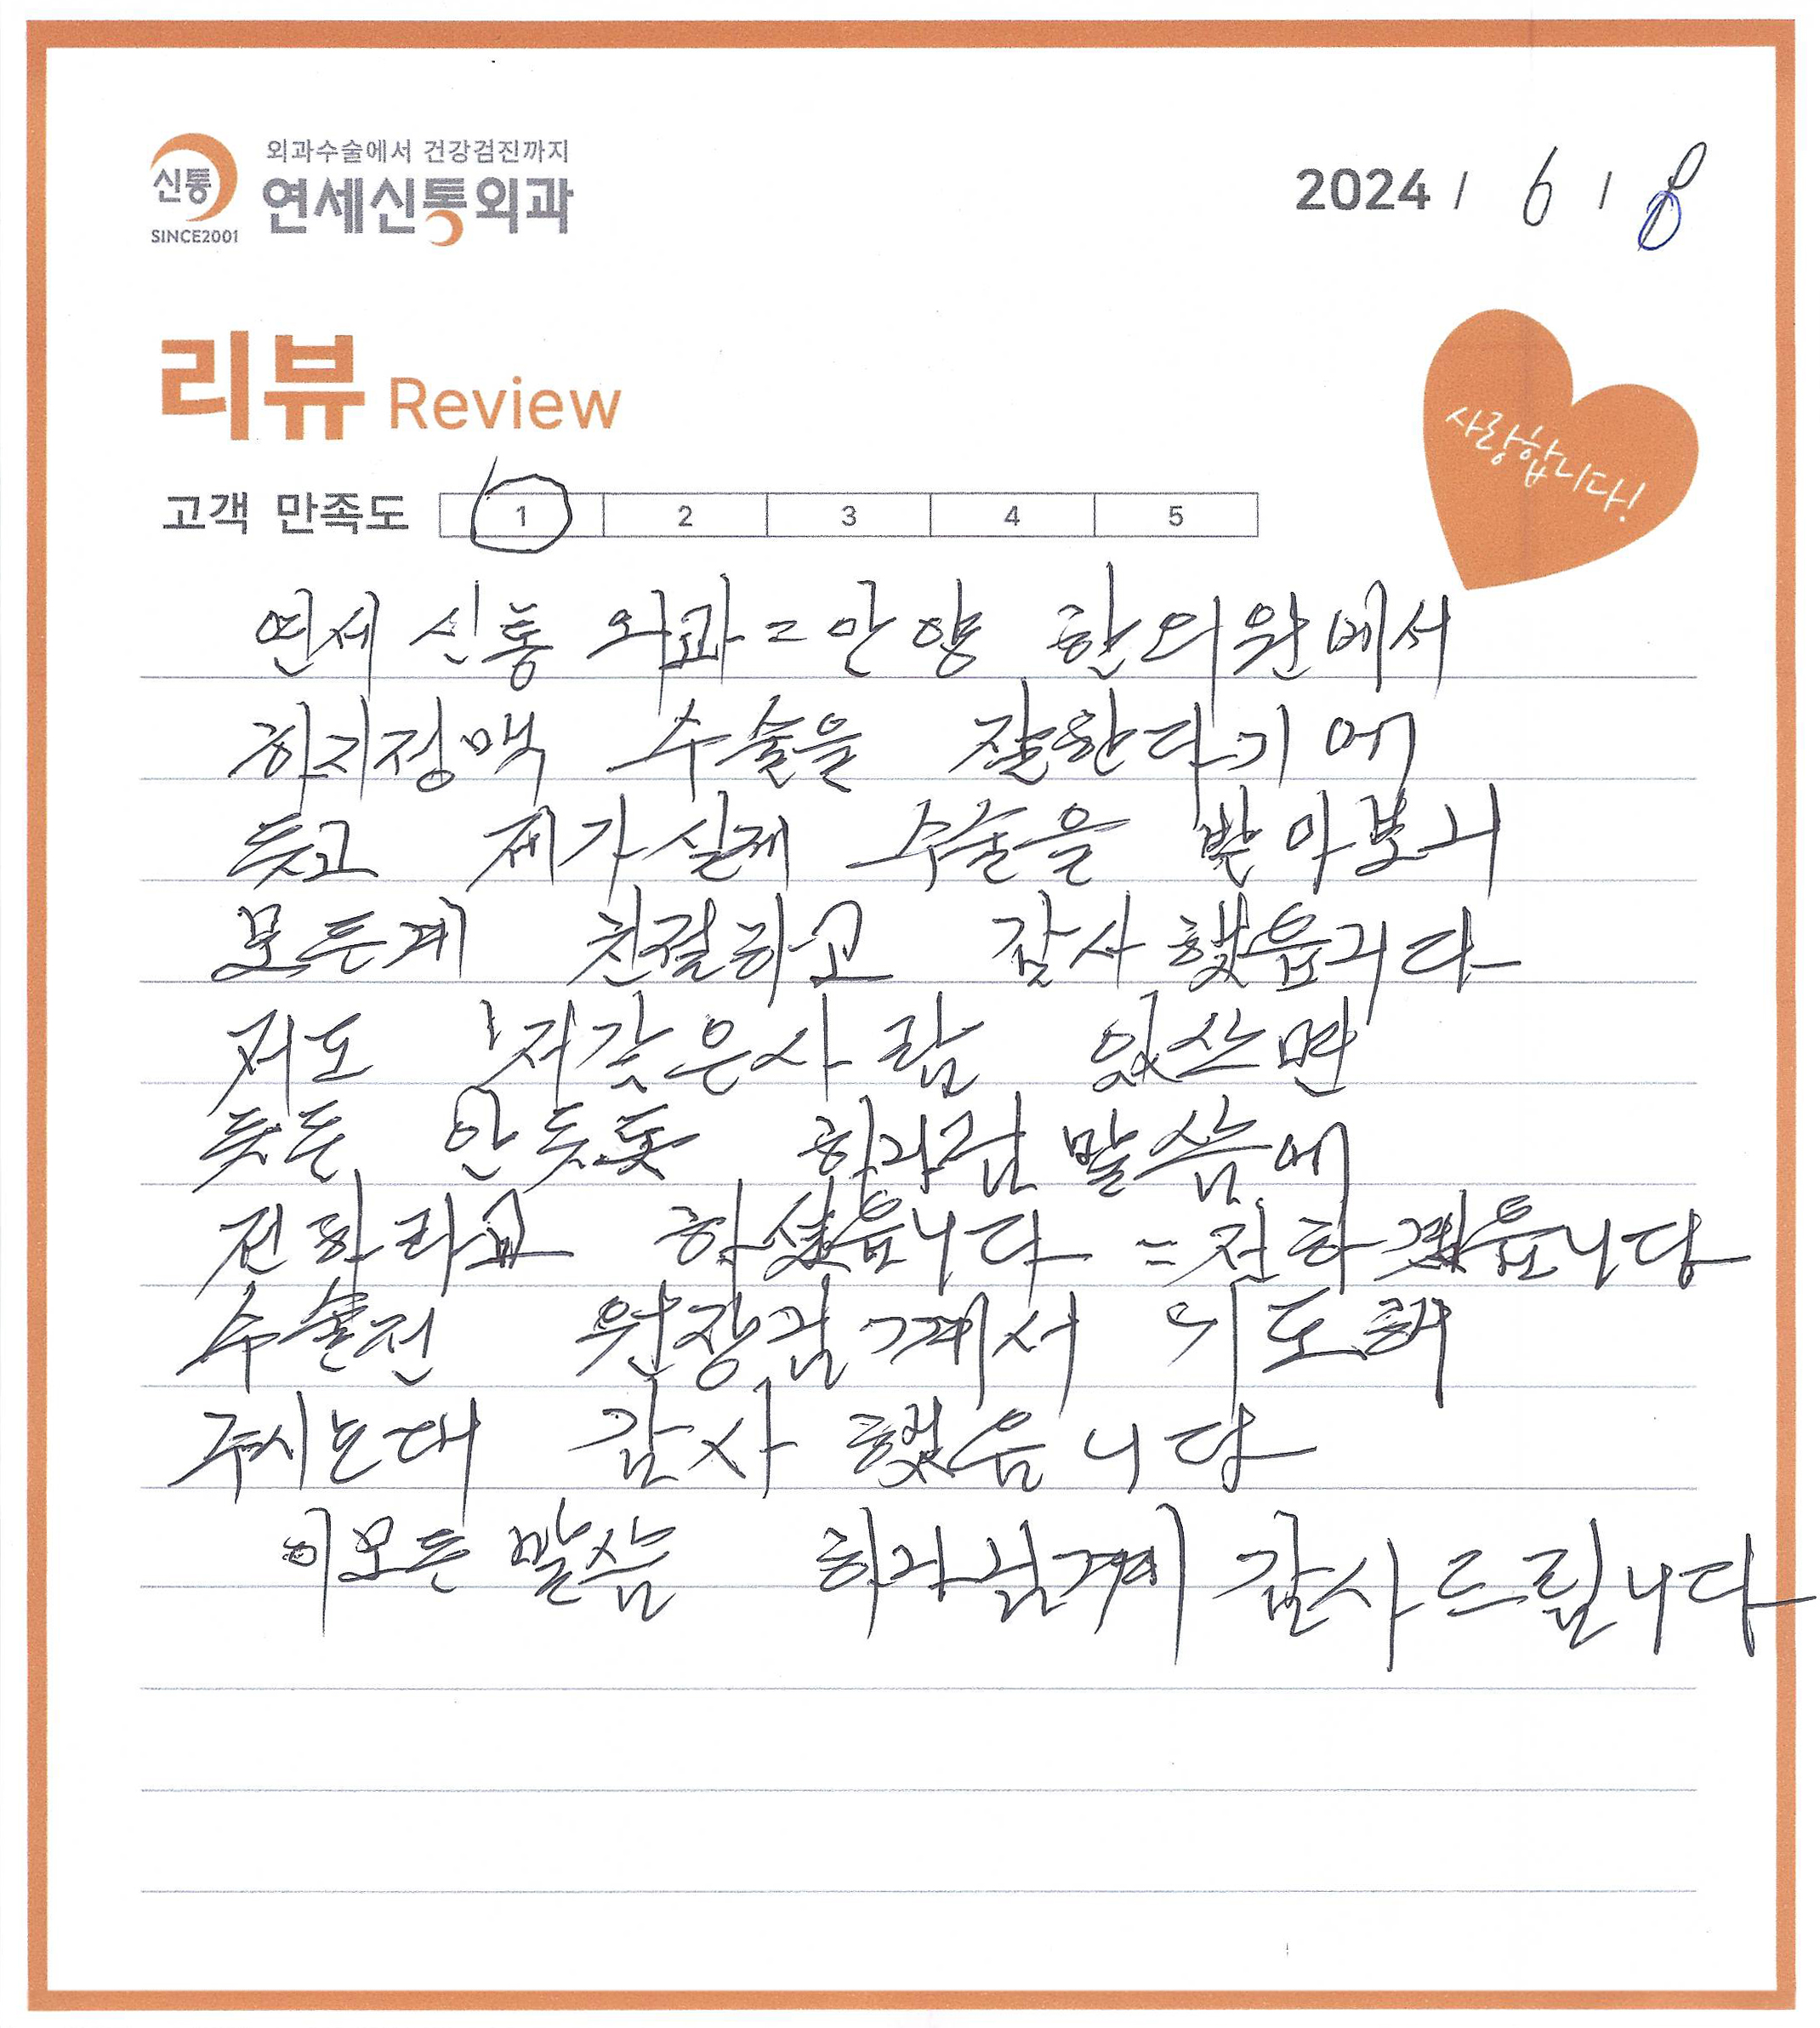 신통
SINCE2001
외과수술에서 건강검진까지
연세신통외과
2024 / 6 / 8
리뷰 Review
사랑합니다!
고객 만족도 1 2 3 4 5
연세 신통 외과 = 안양 한의원에서
하지정맥 수술을 잘한다기에
듯고 제가 실제 수술을 받아보니
모든게 친절하고 감사했읍니다
저도 저같은사람 있스면
듯든 안듯든 하나님 말씀에
전하라고 하셨읍니다 = 전하겠읍니다
수술전 원장님께서 기도해
주시는대 감사 했읍니다
이모든 말씀 하나님께 감사드립니다